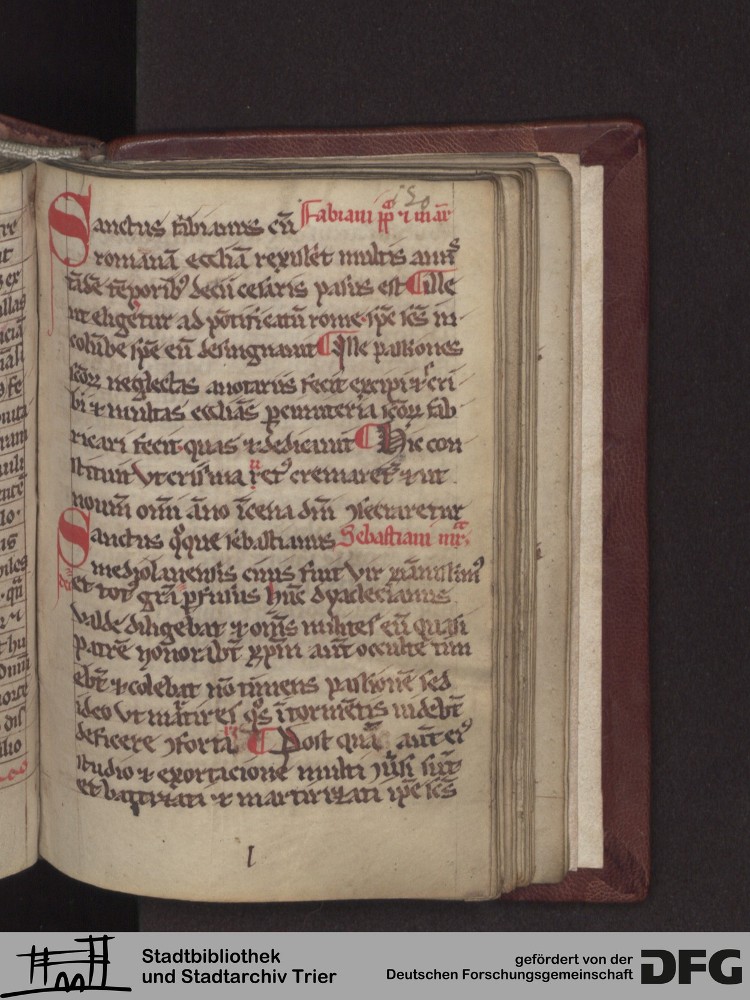 120
Sanctus fabianus cū Fabiani pp̄ ⁊ mar̄
romanā eccliā rexuʒet multis annis
tādē tēporib⁹ decii cesaris passus est Ille
ut eligetur ad pōtificatū rome spē sc̄s in
colūbe spē eū designauit Ille passiones
sc̄oꝝ neglectas a notariis fecit excipi ⁊ scri
bi ⁊ multas eccliās ꝑ cimiteria sc̄oꝝ fab
ricari fecit quas ⁊ dedicauit Hic con
stituit vt crisma uet⁹ cremaret̄ ⁊ ut
nouum omī āno ī cena dm̄ ꝯsecraretur
Sanctus q̊que sebastianus Sebastiani mr̄
mediolanensis ciuis fuit vir xp̄ianissim⁹
et tot⁹ grā ꝑfusus hūc dyaclecianus
valde diligebat ⁊ om̄s milites eū quasi
patrē honorabāt xp̄m aut̄ occulte tim
ebat ⁊ colebat nō timens passionē sed
ideo vt martires q̊s ī tormētis uidebat
deficere ꝯfortaret Post quā aut̄ ei⁹
studio ⁊ exortacione multi ꝯūsi sūt
et baptizati ⁊ martirizati ip̄e sc̄s
l
Stadtbibliothek
und Stadtarchiv Trier
gefördert von der
Deutschen Forschungsgemeinschaft
DFG